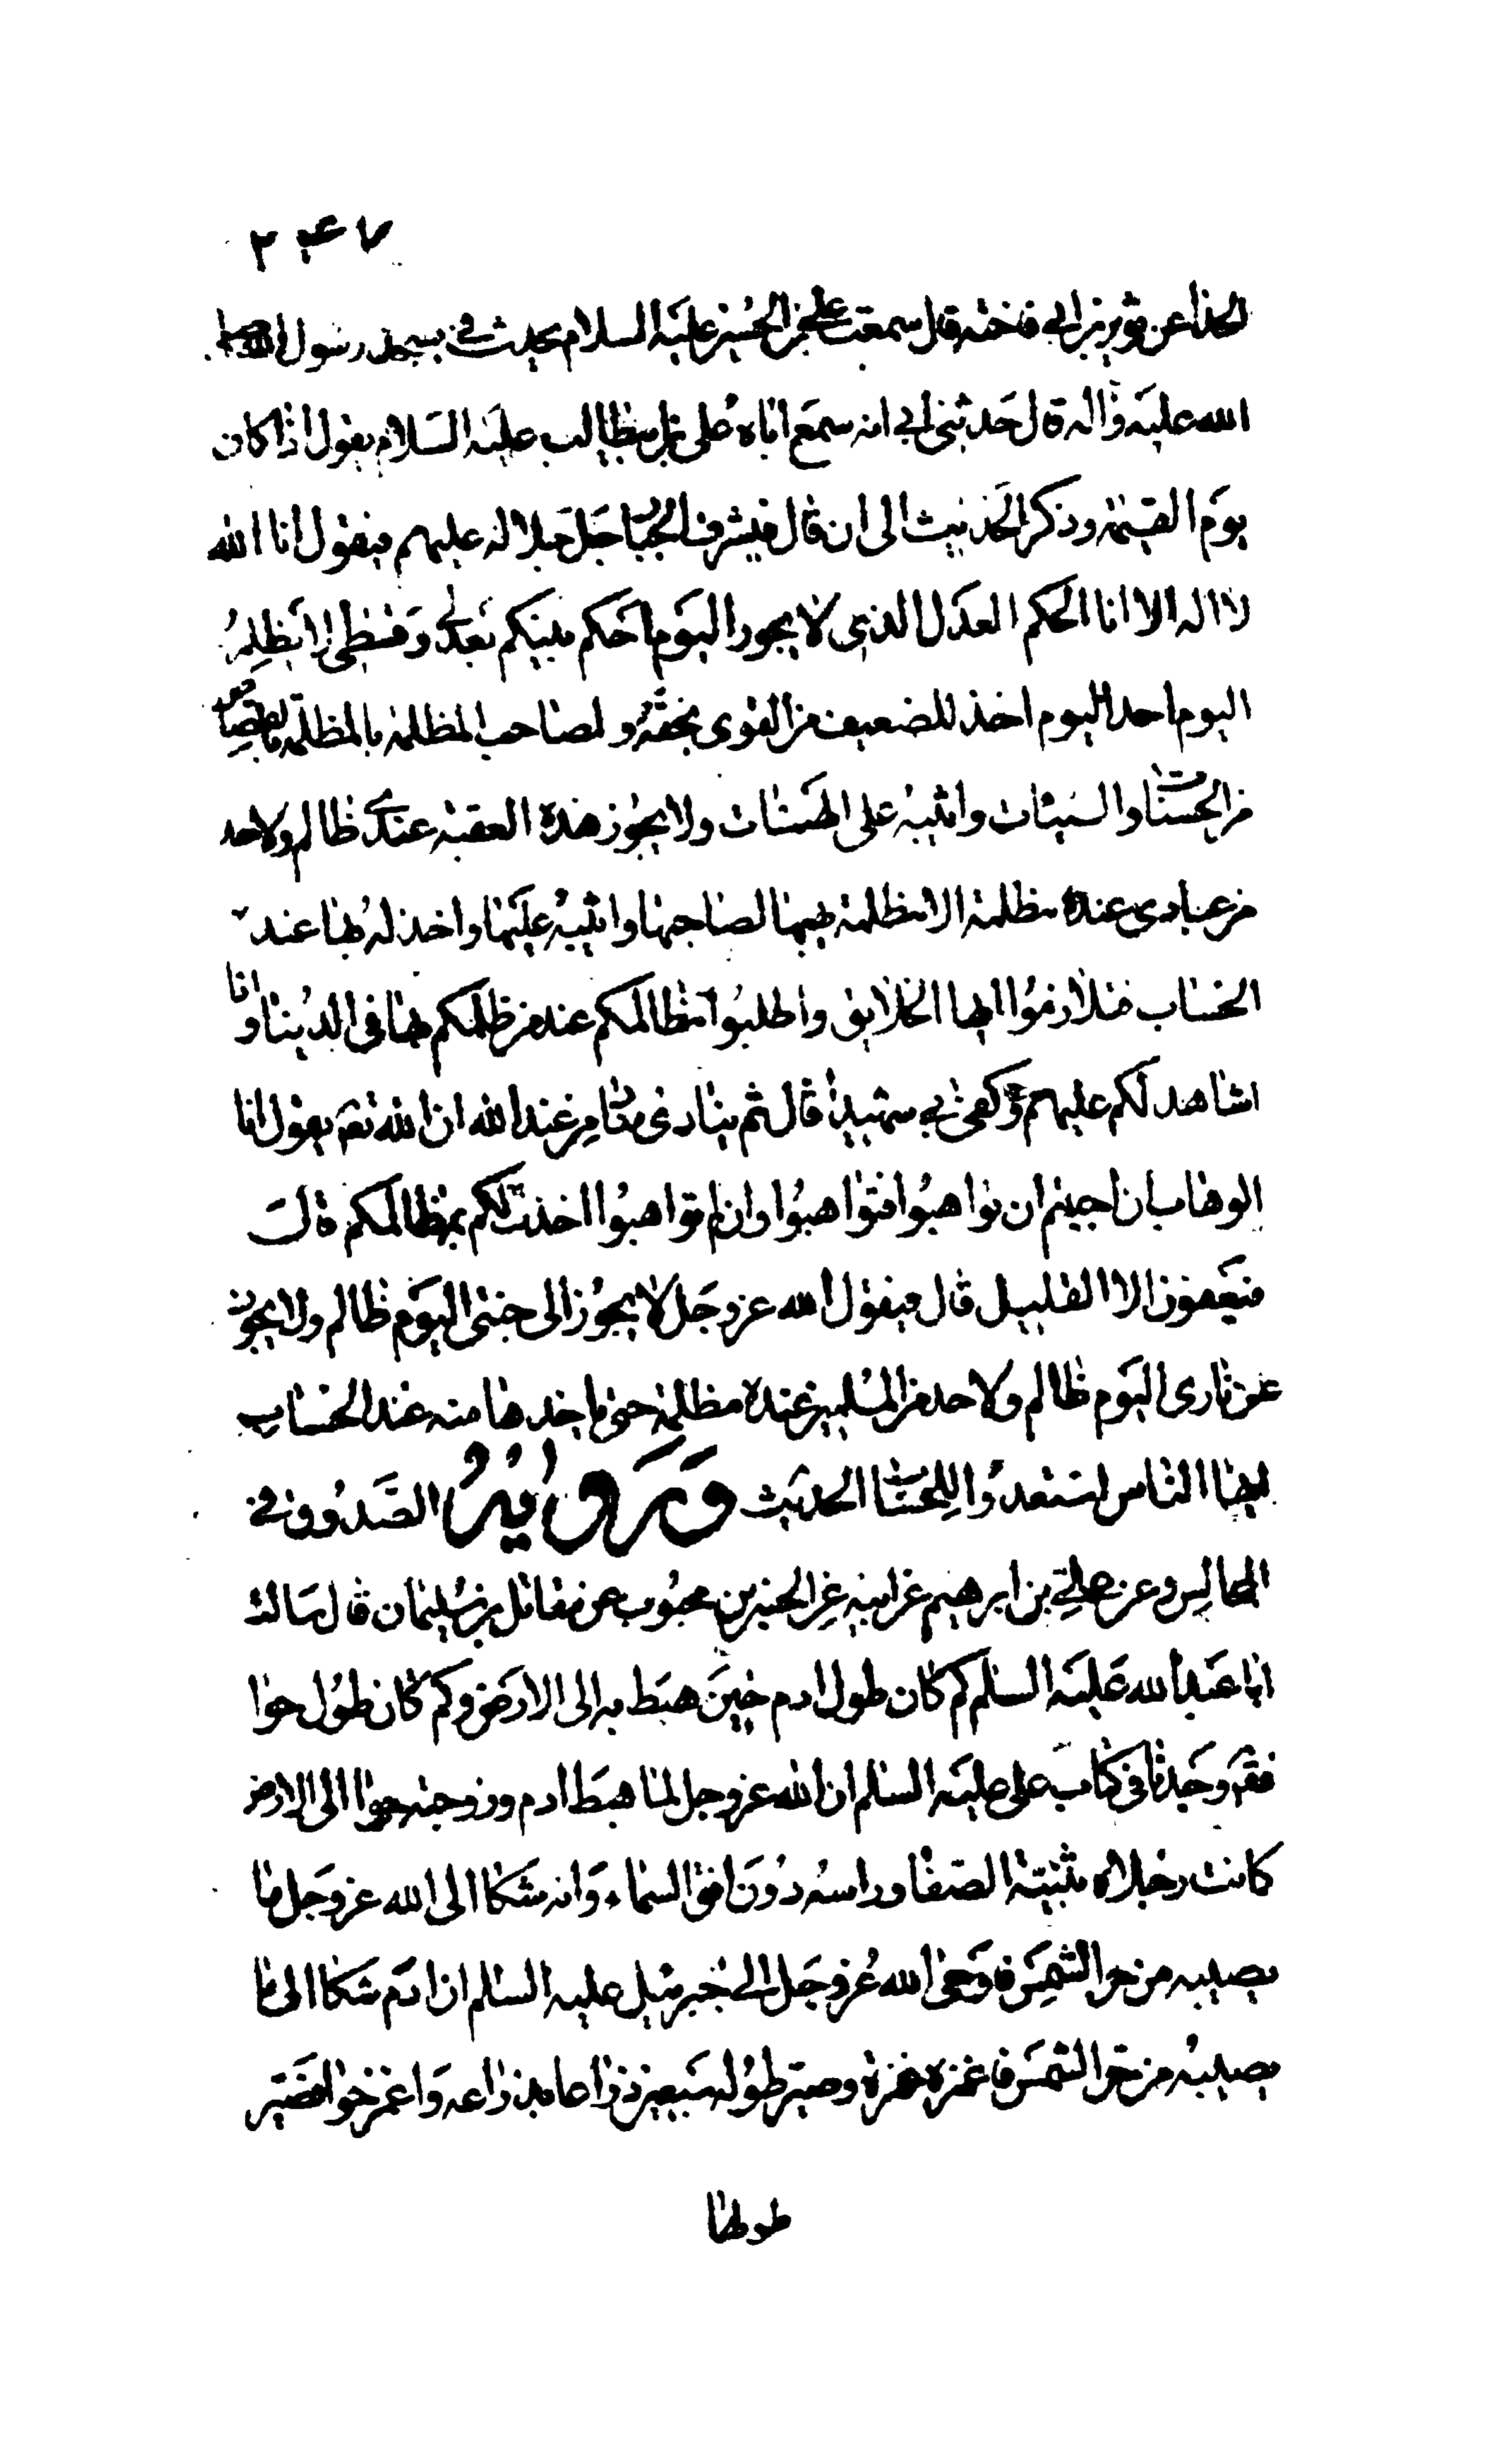 ۲۴۷
الحذا عن ثوير بن ابي فاخته قال سمعت علي بن الحسين عليه السلام يحدث في مسجد رسول الله صلى
الله عليه واله قال حدثني ابي انه سمع اباه علي بن ابيطالب عليه السلام يقول اذا كان
يوم القيمة وذكر الحديث الى ان قال فيشرف الجبار جل جلاله عليهم فيقول انا الله
لا اله الا انا الحكم العدل الذي لا يجور اليوم احكم بينكم بعدلي وقسطي لا يظلم
اليوم احد اليوم اخذ للضعيف من القوى بحقه ولصاحب المظلمة بالمظلمة بالقصاص
من الحسنات والسيئات واثيبه على الهبات ولا يجوز هذه العقبة عندي ظالم ولاحد
من عبادى عنده مظلمة الا مظلمة يهبها لصاحبها واثيبه عليها واخذ له بها عند
الحساب فتلازموا ايها الخلايق واطلبوا مظالمكم عند من ظلمكم بها في الدنيا وانا
شاهد لكم عليهم وكفى بي شهيدا قال ثم ينادى مناد من عند الله ان الله تعم يقول انا
الوهاب ان احببتم ان تواهبوا فتواهبوا وان لم تواهبوا اخذت لكم بمظالمكم قال
فيعفون الا القليل قال فيقول الله عز وجل لا يجوز الى جنتى اليوم ظالم ولا يجوز
عن نارى اليوم ظالم ولاحد من المسلمين عنده مظلمة حتى ياخذها منه عند الحساب
ايها الناس استعدوا للحساب الحديث وروايه الصدوق في
المجالس وعن علي بن ابرهيم عن ابيه عن الحسن بن محبوب عن مقاتل بن سليمان قال سالت
ابا عبد الله عليه السلم كم كان طول ادم حين هبط به الى الارض وكم كان طول حوا
فقم وجدنا في كتاب على عليه السلم ان الله عز وجل لما اهبط ادم وزوجته حوا الى الارض
كانت رجلاه بثنية الصفا وراسه دون افق السماء وانه شكا الى الله عز وجل ما
يصيبه من حر الشمس فاوحى الله عز وجل الى جبرئيل عليه السلم ان ادم شكا الى ما
يصيبه من حر الشمس فاغمزه غمزة وصير طوله سبعين ذراعا بذراعه واغمز حوا فصير
طولها